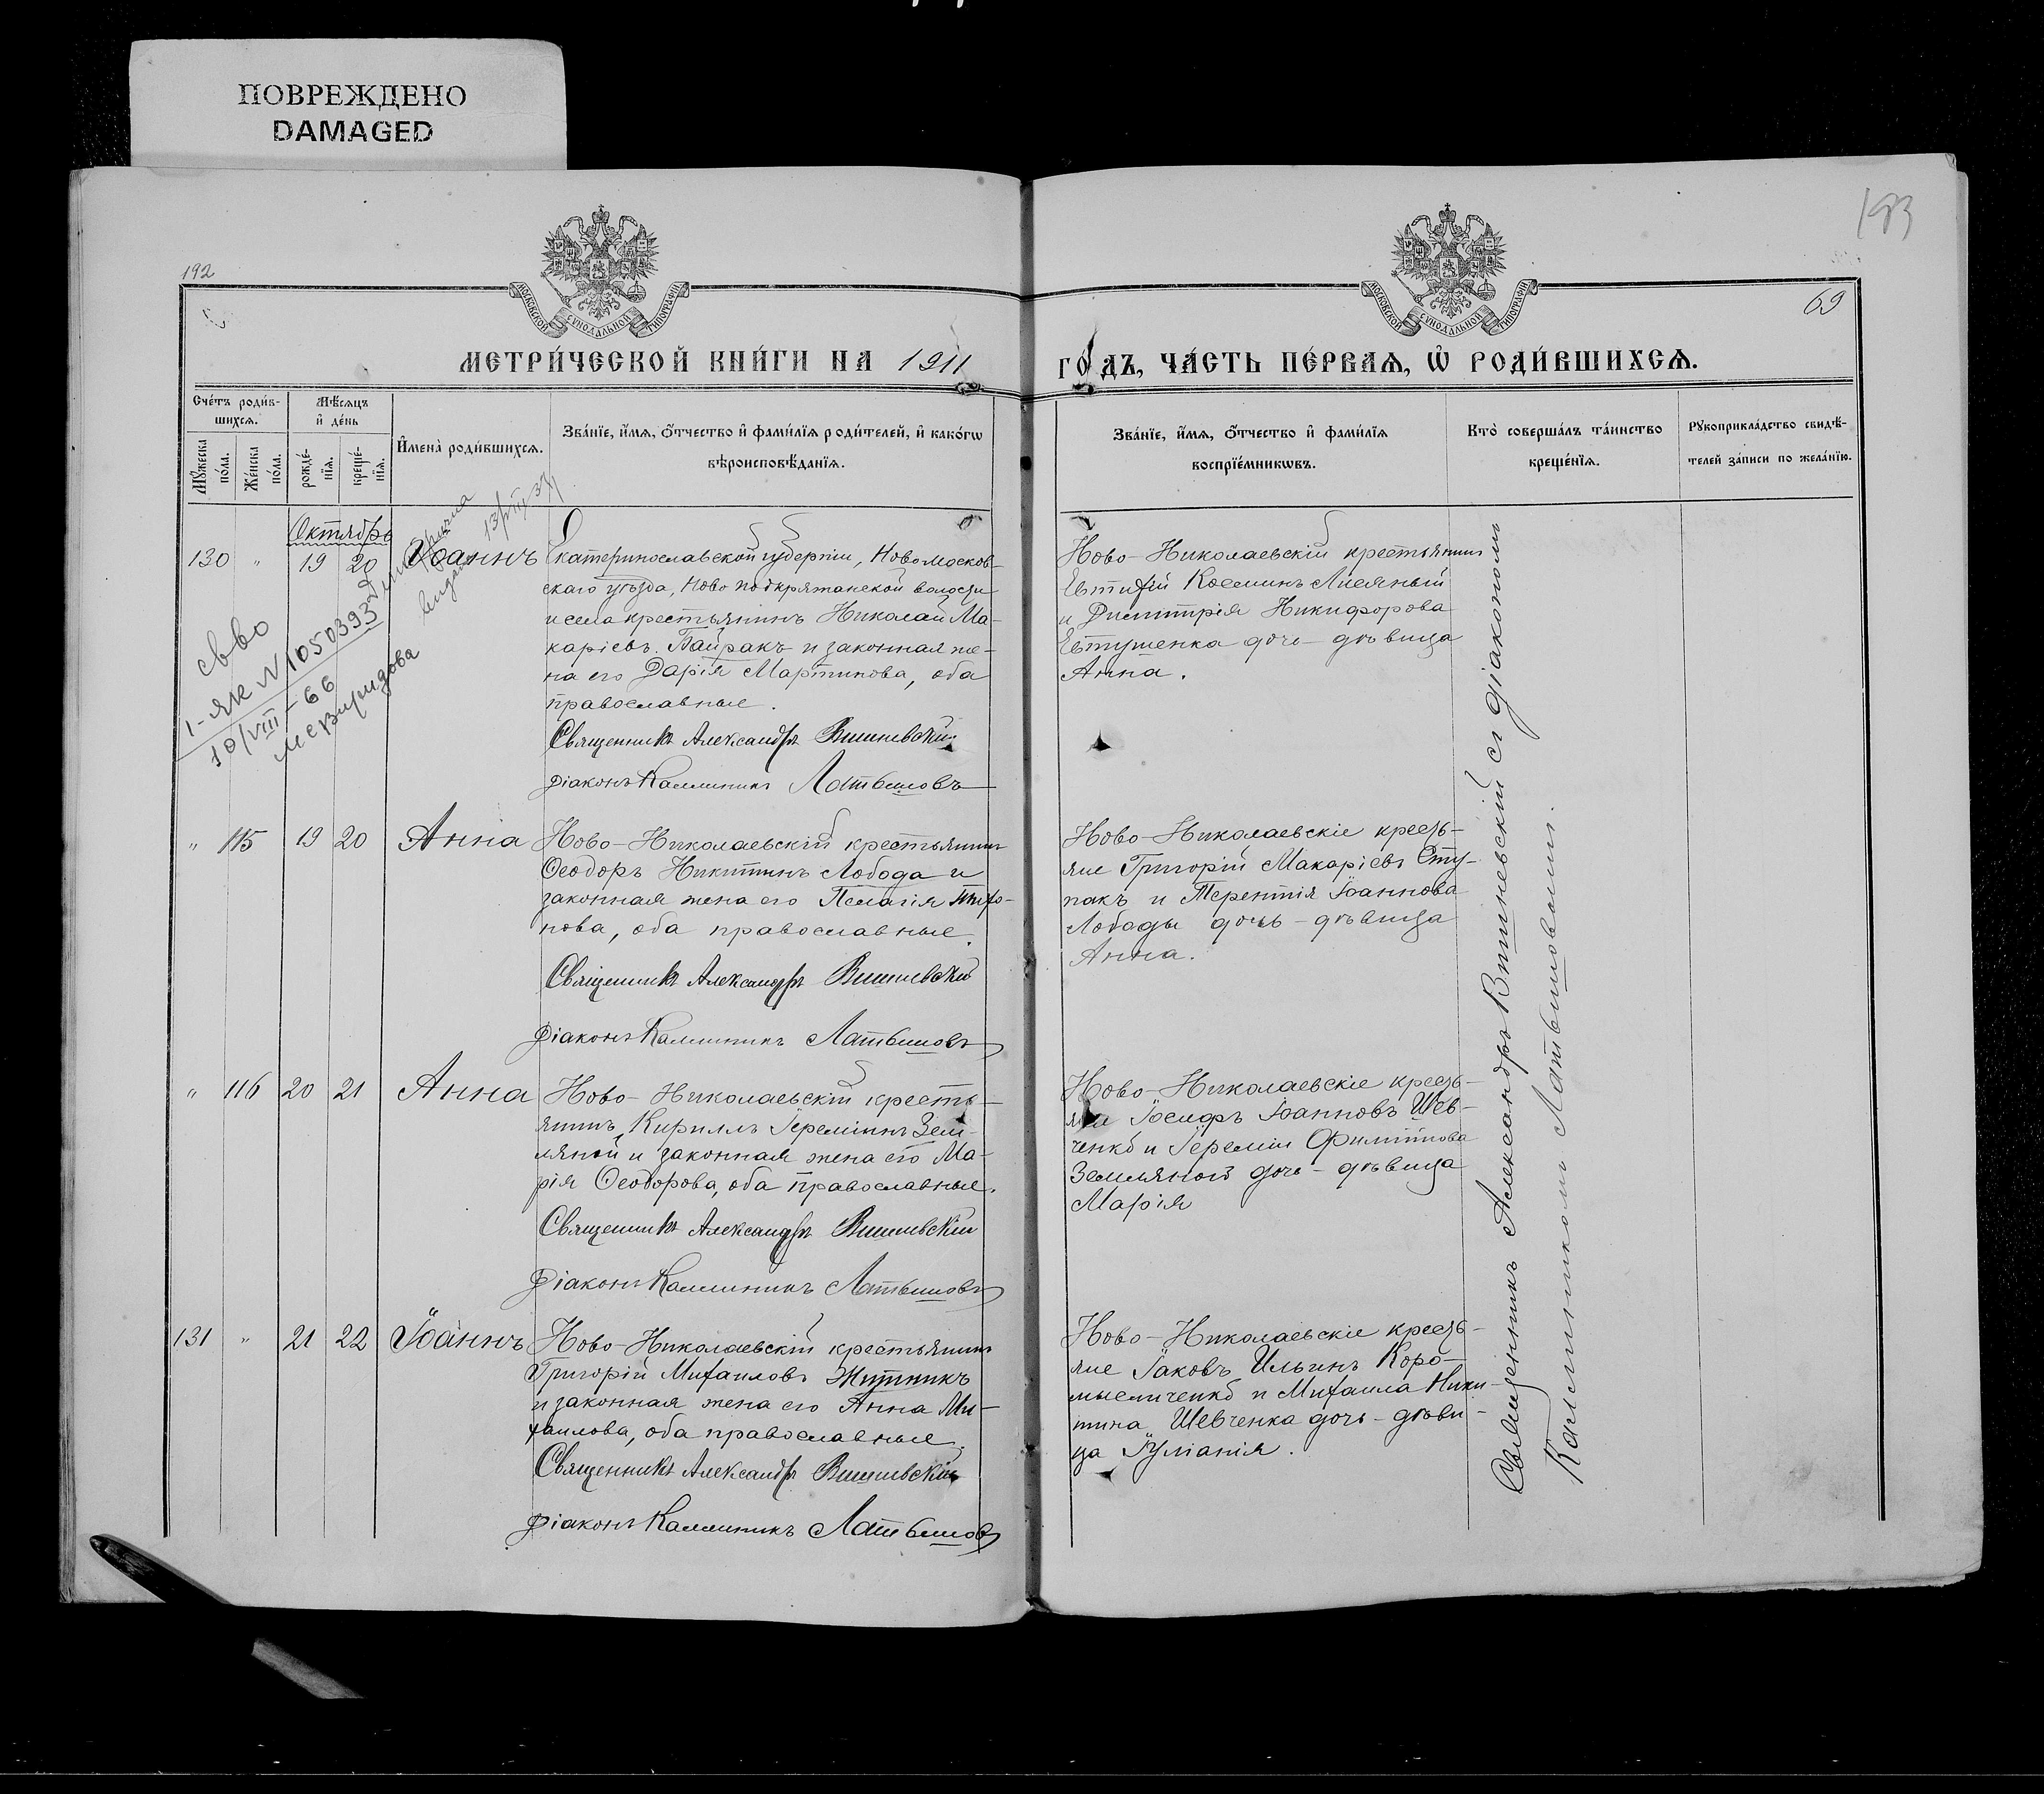 ПОВРЕЖДЕНО
DAMAGED
192
193
69
МОСКОВСКОЙ СУНОДАЛЬНОЙ ТИПОГРАФІИ
МОСКОВСКОЙ СУНОДАЛЬНОЙ ТИПОГРАФІИ
МЕТРИ́ЧЕСКОЙ КНИ́ГИ НА 1911
ГО́ДЪ, ЧА́СТЬ ПЕ́РВАѦ, Ѡ҆ РОДИ́ВШИХСѦ.
Сче́тъ роди́в-
шихсѧ.
Мꙋ́жеска по́ла.
Же́нска по́ла.
Мѣ́сѧцъ
и҆ де́нь
рожде́-
нїѧ.
креще́-
нїѧ.
И҆мена̀ роди́вшихсѧ.
Зва́нїе, и҆́мѧ, ѻ҆́тчество и҆ фами́лїѧ роди́телей, и҆ како́гѡ
вѣроисповѣ́данїѧ.
Зва́нїе, и҆́мѧ, ѻ҆́тчество и҆ фами́лїѧ
воспрїе́мникѡвъ.
Кто̀ соверша́лъ та́инство
креще́нїѧ.
Рꙋкоприкла́дство свидѣ́-
телей за́писи по жела́нїю.
Октябрь
130 " 19 20 Іоаннъ
Екатеринославской губерніи, Новомосков-
скаго уѣзда, Ново подкряжанской волости
и села крестьянинъ Николай Ма-
каріевъ Байракъ и законная же-
на его Дарія Мартинова, оба
православные.
Священникъ Александръ Вишневскій
Діаконъ Каллиникъ Латвиновъ
Ново-Николаевскій крестьянинъ
Евтихій Косминъ Лисяный
и Димитрія Никифорова
Евтушенка дочь - дѣвица
Анна.
свво
1-яж № 1050393
10/VIII-66
13/VIII 37
" 115 19 20 Анна
Ново-Николаевскій крестьянинъ
Ѳеодоръ Никитинъ Лобода и
законная жена его Пелагія Тихо-
нова, оба православные.
Священникъ Александръ Вишневскій
Діаконъ Каллиникъ Латвиновъ
Ново-Николаевскіе кресть-
яне Григорій Макаріевъ Сту-
пакъ и Терентія Іоаннова
Лободы дочь - дѣвица
Анна.
" 116 20 21 Анна
Ново-Николаевскій кресть-
янинъ Кириллъ Іереміинъ Зем-
ляной и законная жена его Ма-
рія Ѳеодорова, оба православные.
Священникъ Александръ Вишневскій
Діаконъ Каллиникъ Латвиновъ
Ново-Николаевскіе кресть-
яне Іосифъ Іоанновъ Шев-
ченко и Іереміи Филиппова
Земляной дочь - дѣвица
Марія
131 " 21 22 Іоаннъ
Ново-Николаевскій крестьянинъ
Григорій Михаиловъ Житникъ
и законная жена его Анна Ми-
хаилова, оба православные.
Священникъ Александръ Вишневскій
Діаконъ Каллиникъ Латвиновъ
Ново-Николаевскіе кресть-
яне Іаковъ Ильинъ Коро-
мысличенко и Михаила Ники-
тина Шевченка дочь - дѣви-
ца Іуліанія.
Священникъ Александръ Вишневскій съ діакономъ
Каллиникомъ Латвиновымъ.